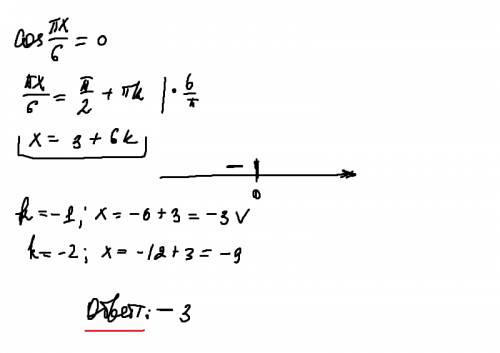 cos πx/6 = 0
πx/6 = π/2 + πk | · 6/π
x = 3 + 6k
−
0
k = -1; x = -6 + 3 = -3 ∨
k = -2; x = -12 + 3 = -9
Ответ: - 3